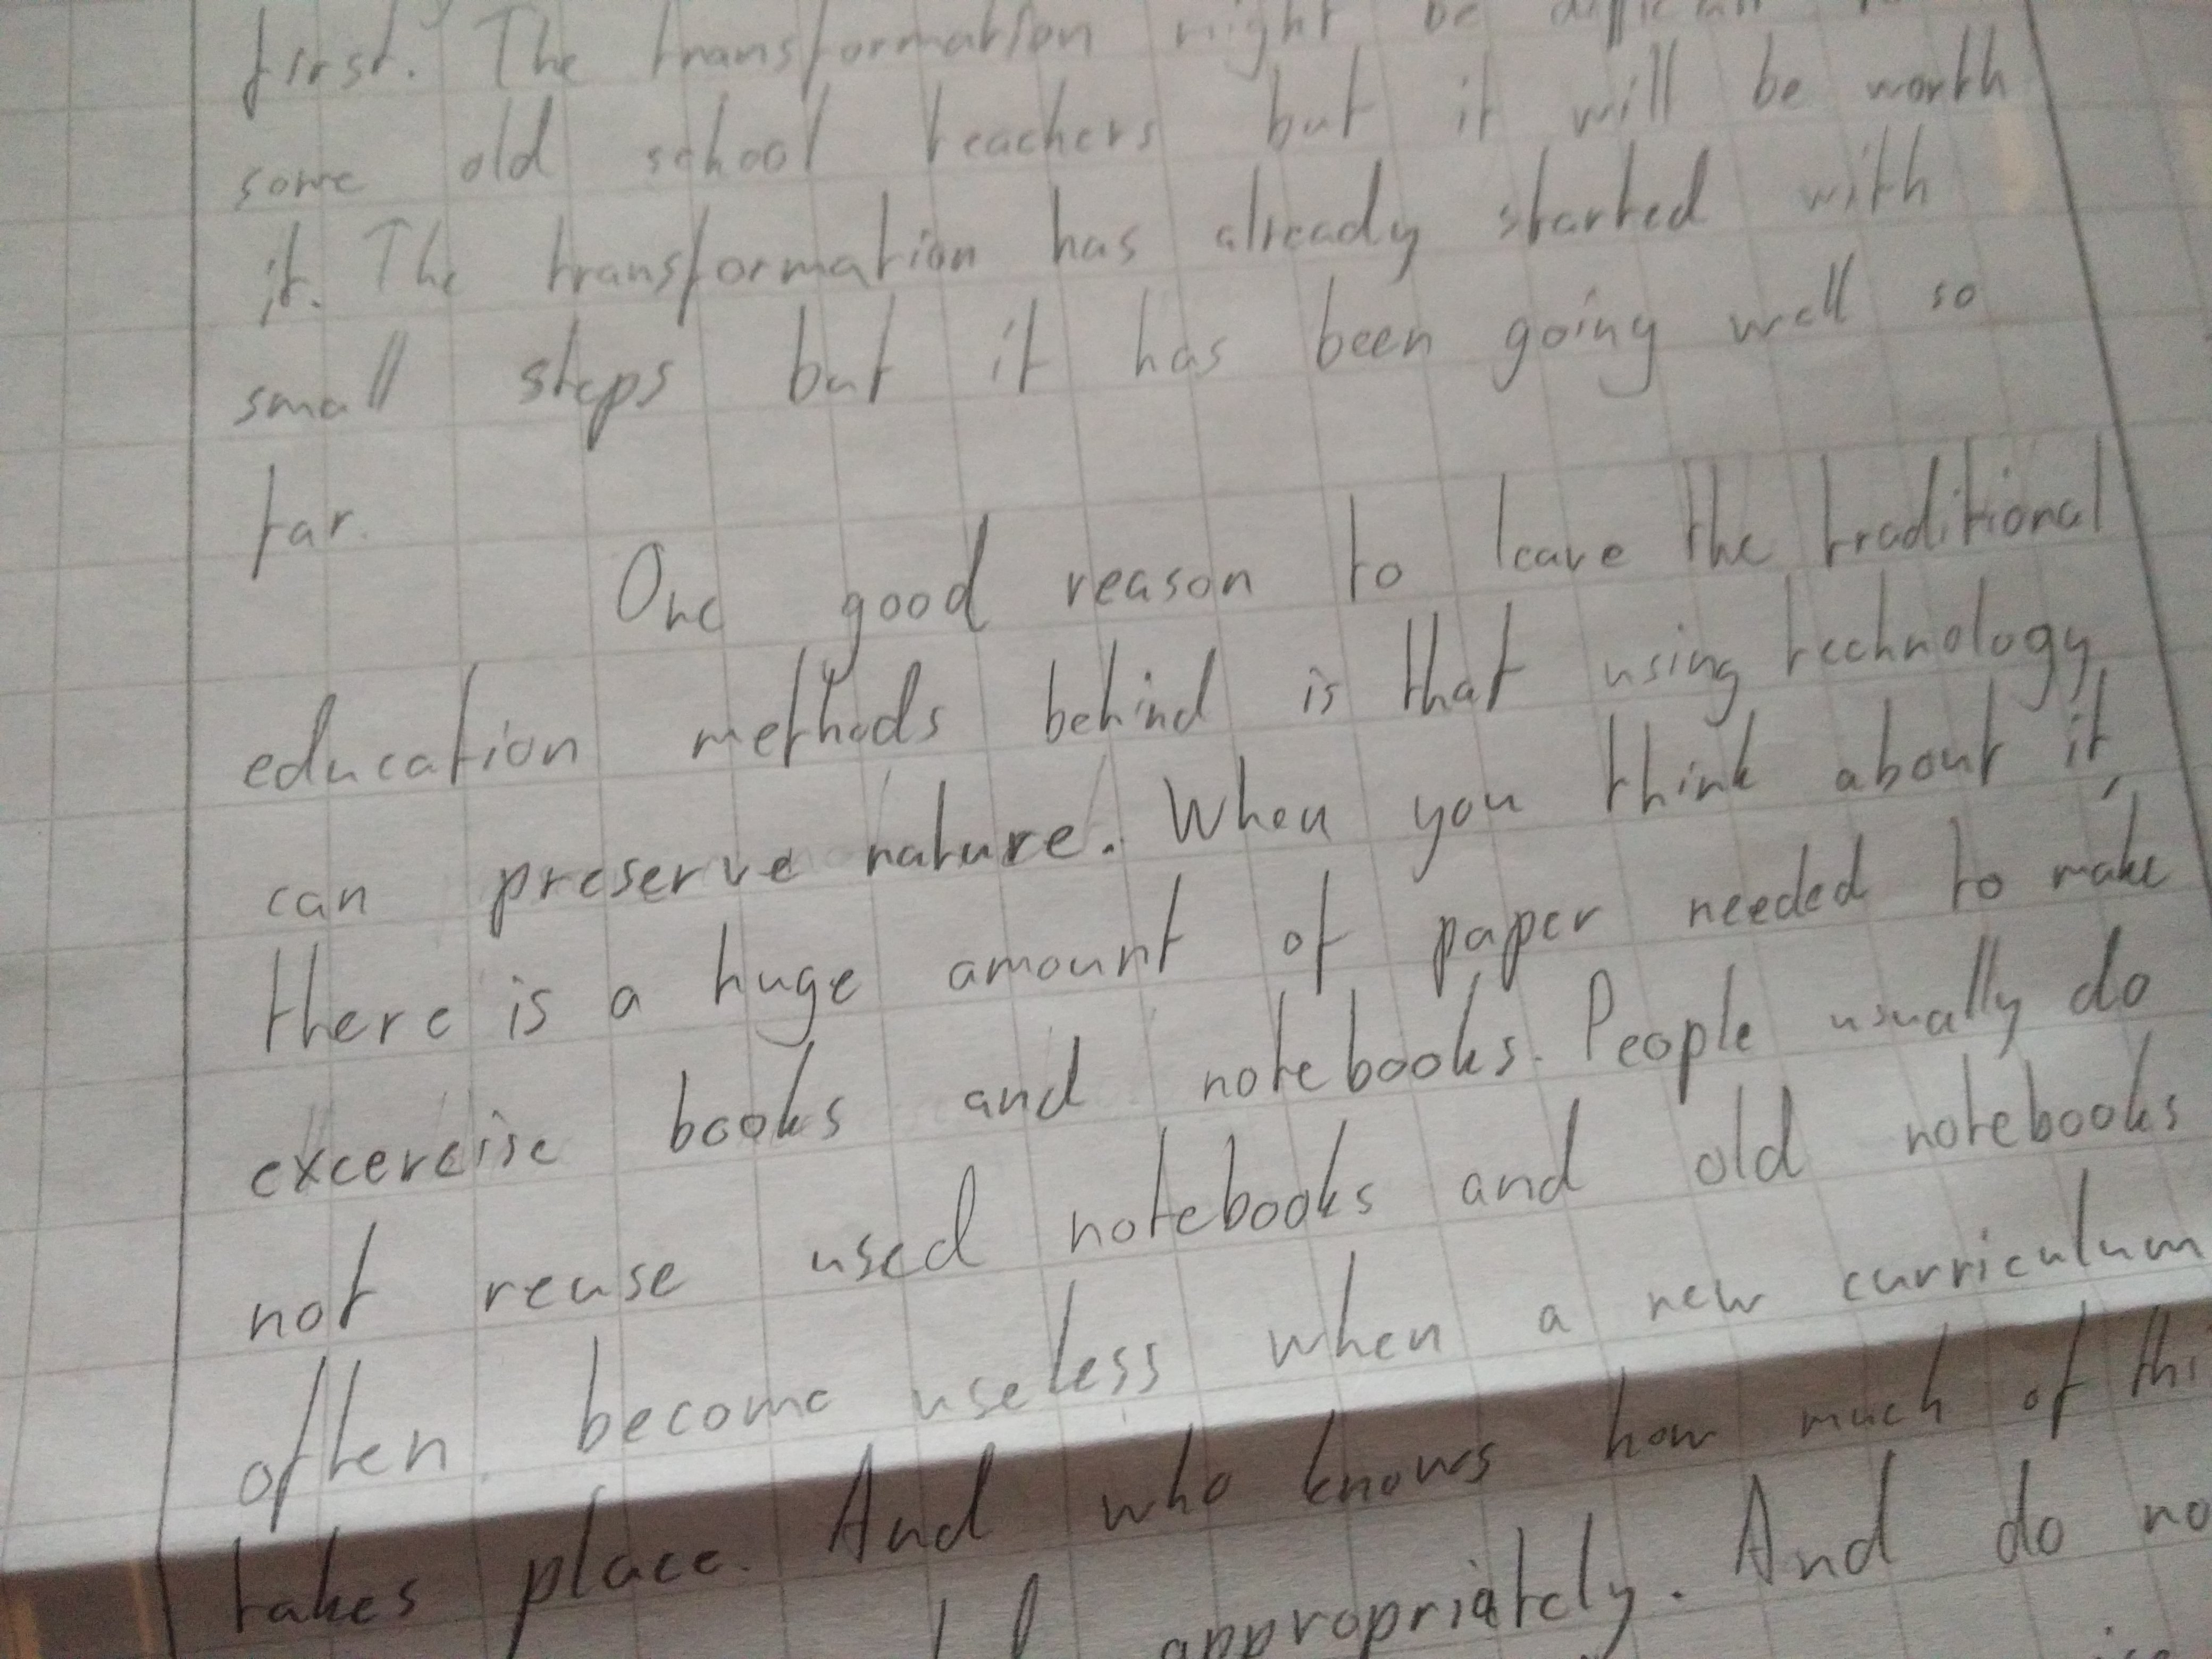 first. The transformation might be difficult
some old school teachers but it will be worth
it. The transformation has already started with
small steps but it has been going well so
far.
One good reason to leave the traditional
education methods behind is that using technology
can preserve nature. When you think about it,
there is a huge amount of paper needed to make
excercise books and notebooks. People usually do
not reuse used notebooks and old notebooks
often become useless when a new curriculum
takes place. And who knows how much of thi
appropriately. And do no